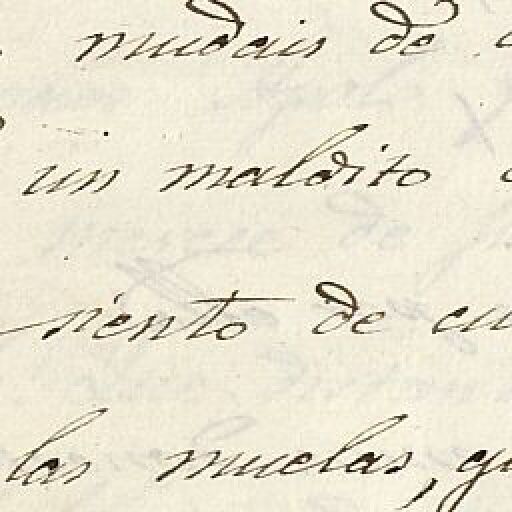 mudais de
un maldito
siento de cu
las muelas, qu